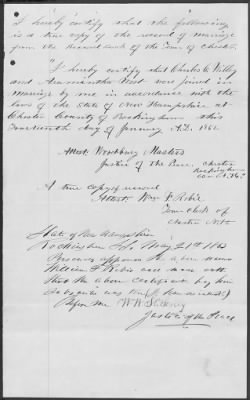 I hereby certify that the following
is a true copy of the record of marriage
from the Record book of the Town of Chester
"I hereby certify that Charles C. Willey
and West were joined in
marriage by me in accordance with the
laws of the State of New Hampshire at
Chester County of Rockingham this
day of January A.D. 1862
Attest Masters
Justice of the Peace, Chester
Rockingham
Co. N.H."
A true copy of record
Attest Wm F Robie
Town Clerk of
Chester N.H.
State of New Hampshire
Rockingham Ss. May 21st 186
appeared the above named
William F Robie and made oath
that the above certificate by him
subscribed was true
Before me W W
Justice of the Peace